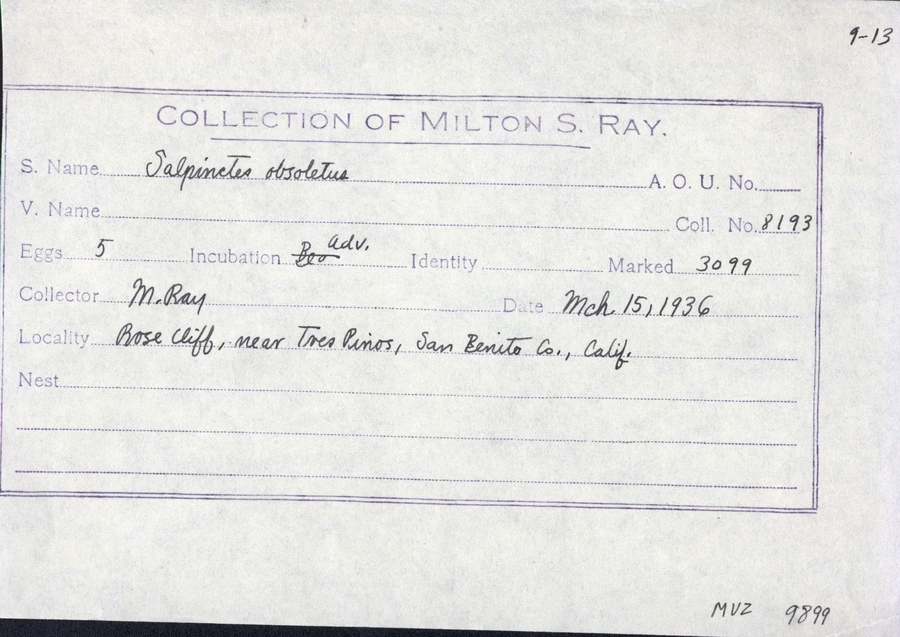 9-13
COLLECTION OF MILTON S. RAY.
S. Name Salpinctes obsoletus A. O. U. No.
V. Name Coll. No. 8193
Eggs 5 Incubation Beg adv. Identity Marked 3099
Collector M. Ray Date Mch. 15, 1936
Locality Rose Cliff, near Tres Pinos, San Benito Co., Calif.
Nest
MVZ 9899